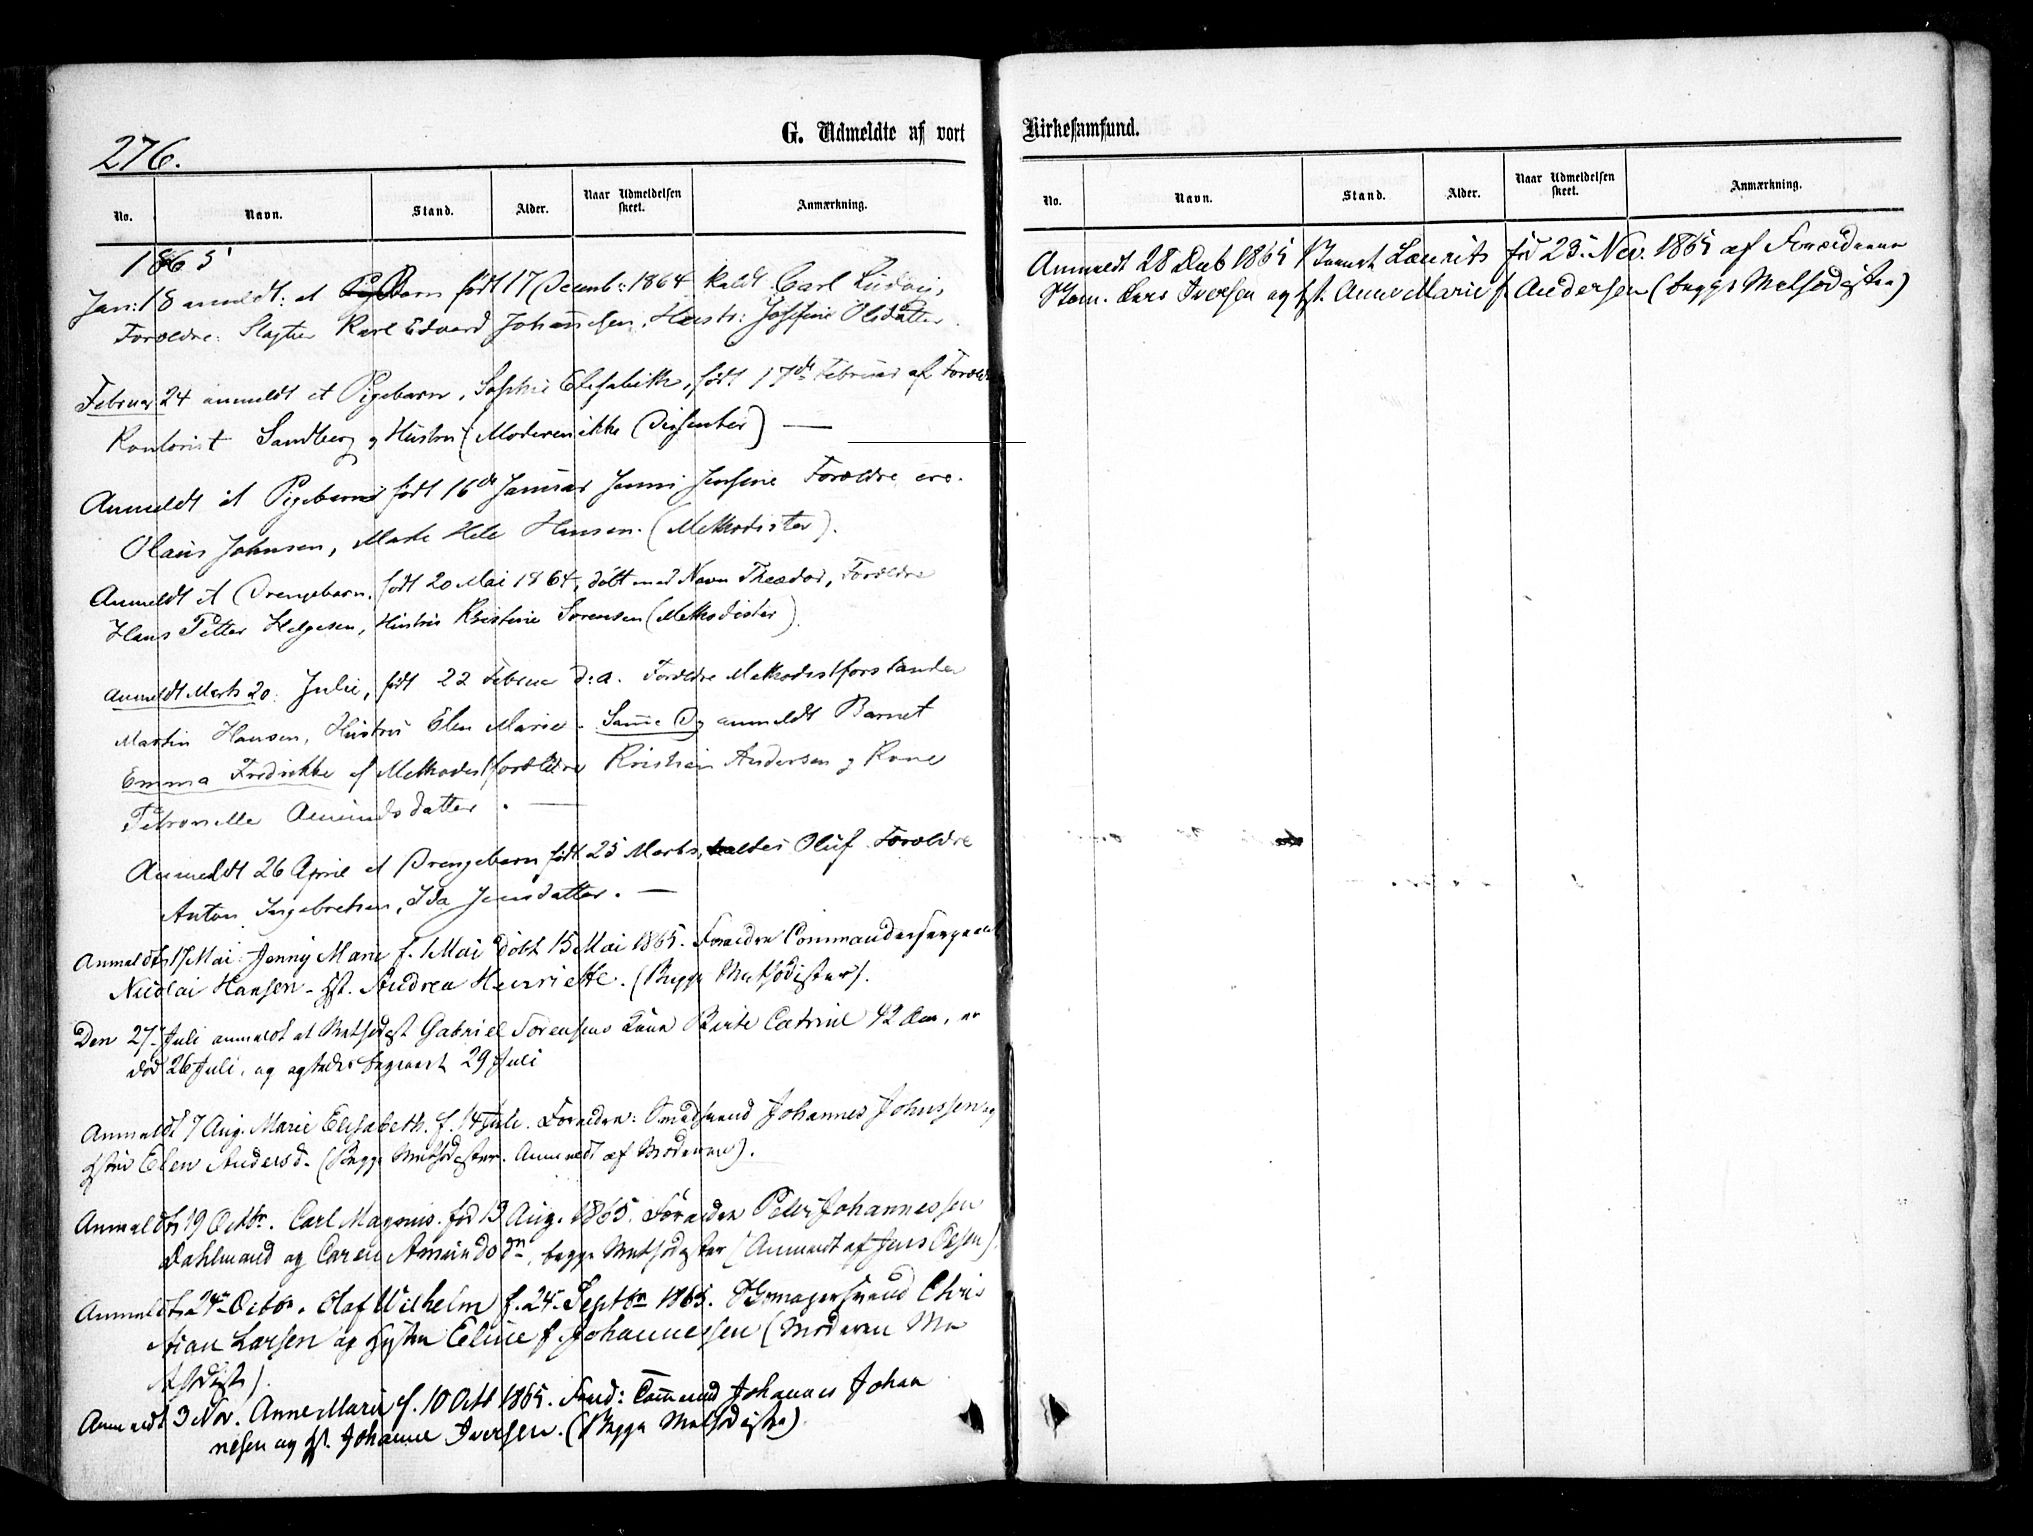 276.
G. Udmeldte af vort
No. Navn. Stand. Alder. Naar Udmeldelsen skeet. Anmærkning.
1865
Jan: 18 anmeldt: et Barn født 17 Decemb: 1864 kaldt Carl Ludvig,
Forældre: Slagter Karl Edvard Johannesen, Hustr: Josefine Olsdatter
Februar 24 anmeldt et Pigebarn, Sophie Elisabeth, født 17de Februar af Foreldre
Kontorist Sandberg og Hustru (Moderen ikke Dissenter) —
Anmeldt et Pigebarn født 16de Januar Jenni Josefine Forældre ere.
Olaus Johnsen, Marte Hele Hansen. (Methodister).
Anmeldt et Drengebarn, født 20 Mai 1864, døbt med Navn Theodor, Forældre
Hans Petter Helgesen, Hustru Kristine Sørensen (Methodister)
Anmeldt Marts 20. Julie, født 22 Februar d:a. Forældre Methodistforstander
Martin Hansen, Hustru Elen Marie. Samme Dg anmeldt Barnet
Emma Fredrikke af Methodistforældre Kristian Andersen og Kone
Petronelle Amundsdatter. —
Anmeldt 26 April et Drengebarn født 25 Marts, kaldes Oluf Forældre
Anton Ingebretsen, Ida Jensdatter. —
Anmeldt 17 Mai: Jenny Marie f. 1 Mai døbt 15 Mai 1865. Forældre Commandersergeant
Nicolai Hansen - Hst. Andrea Henriette. (Begge Methodister).
Den 27 Juli anmeldt at Methodist Gabriel Sørensens Kone Berte Catrine 42 Aar, er
død 26 Juli, og agtedes begravet 29 Juli
Anmeldt 7 Aug. Marie Elisabeth. f. 14 Juli. Forældre: Smedsvend Johannes Johnssen og
Hstru Elen Andersd. (Begge Methodister. Anmeldt af Moderen).
Anmeldt 19 Octbr. Carl Magnus. fød 13 Aug. 1865. Forældre Peter Johannessen
Dahlmand og Caren Amundsdr, begge Methodister (Anmeldt af Jens Olsen).
Anmeldt 24 Octbr. Olaf Wilhelm f. 24 Septbr 1865. Skomagersvend Chri-
stian Larsen og Hustru Eline f. Johannessen (Moderen Me-
thodist).
Anmeldt 3 Nov. Anne Marie f. 10 Oct 1865. Johannes Johan
nesen og Hst. Johanne Iversen. (Begge Methodister)
Kirkesamfund.
No. Navn. Stand. Alder. Naar Udmeldelsen skeet. Anmærkning.
Anmeldt 28 Decb 1865 Laurits fød 23 Nov. 1865 af Forældrene
Lars Iversen og Hst. Anne Marie f. Andersen (begge Methodister)